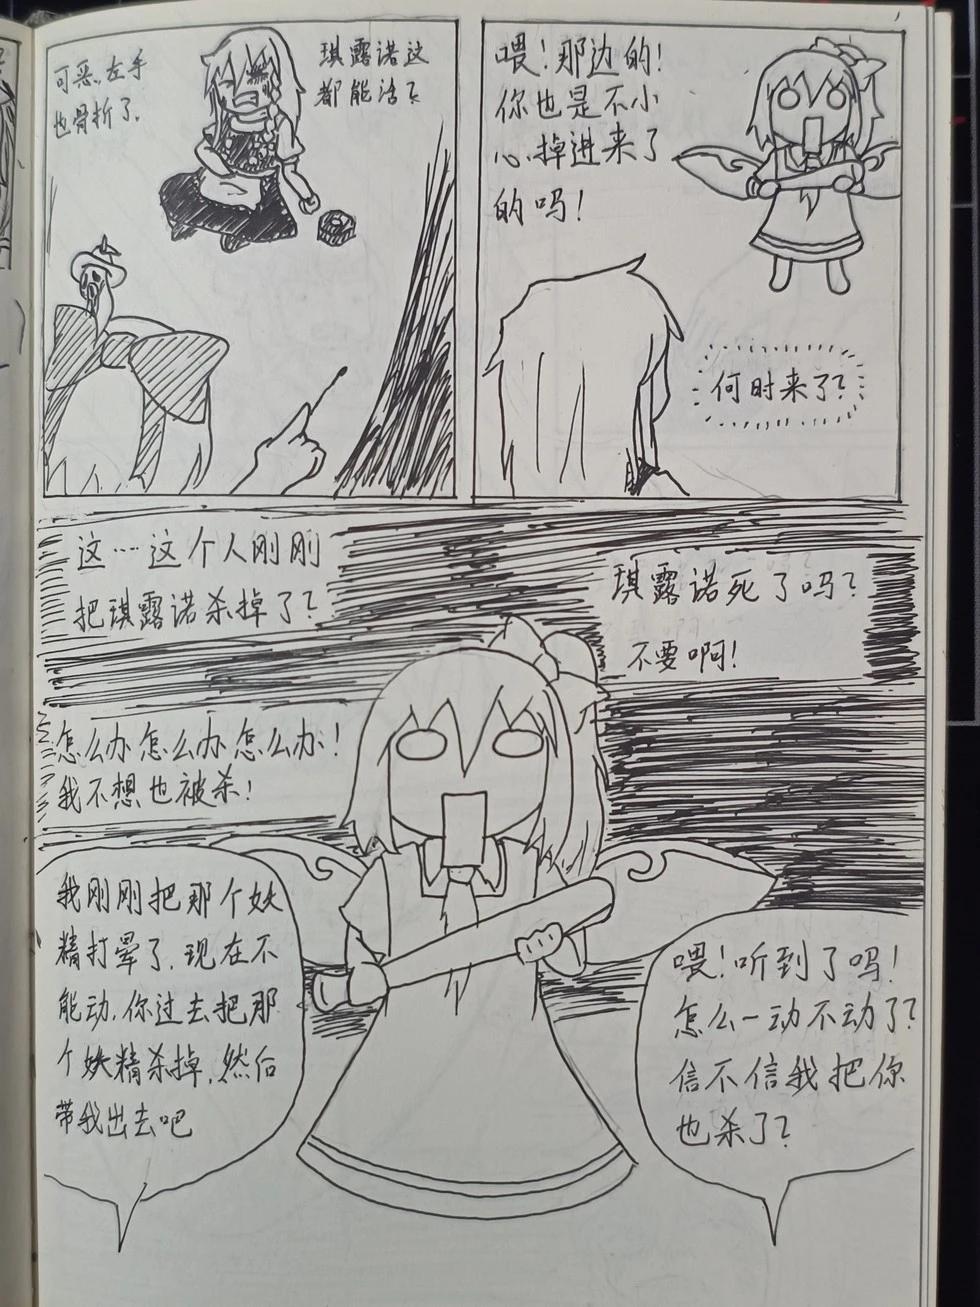 可恶，左手
也骨折了.
琪露诺这
都能活？
喂！那边的！
你也是不小
心掉进来了
的吗！
何时来了？
这……这个人刚刚
把琪露诺杀掉了？
琪露诺死了吗？
不要啊！
怎么办怎么办怎么办！
我不想也被杀！
我刚刚把那个妖
精打晕了，现在不
能动，你过去把那
个妖精杀掉，然后
带我出去吧
喂！听到了吗！
怎么一动不动了？
信不信我把你
也杀了？